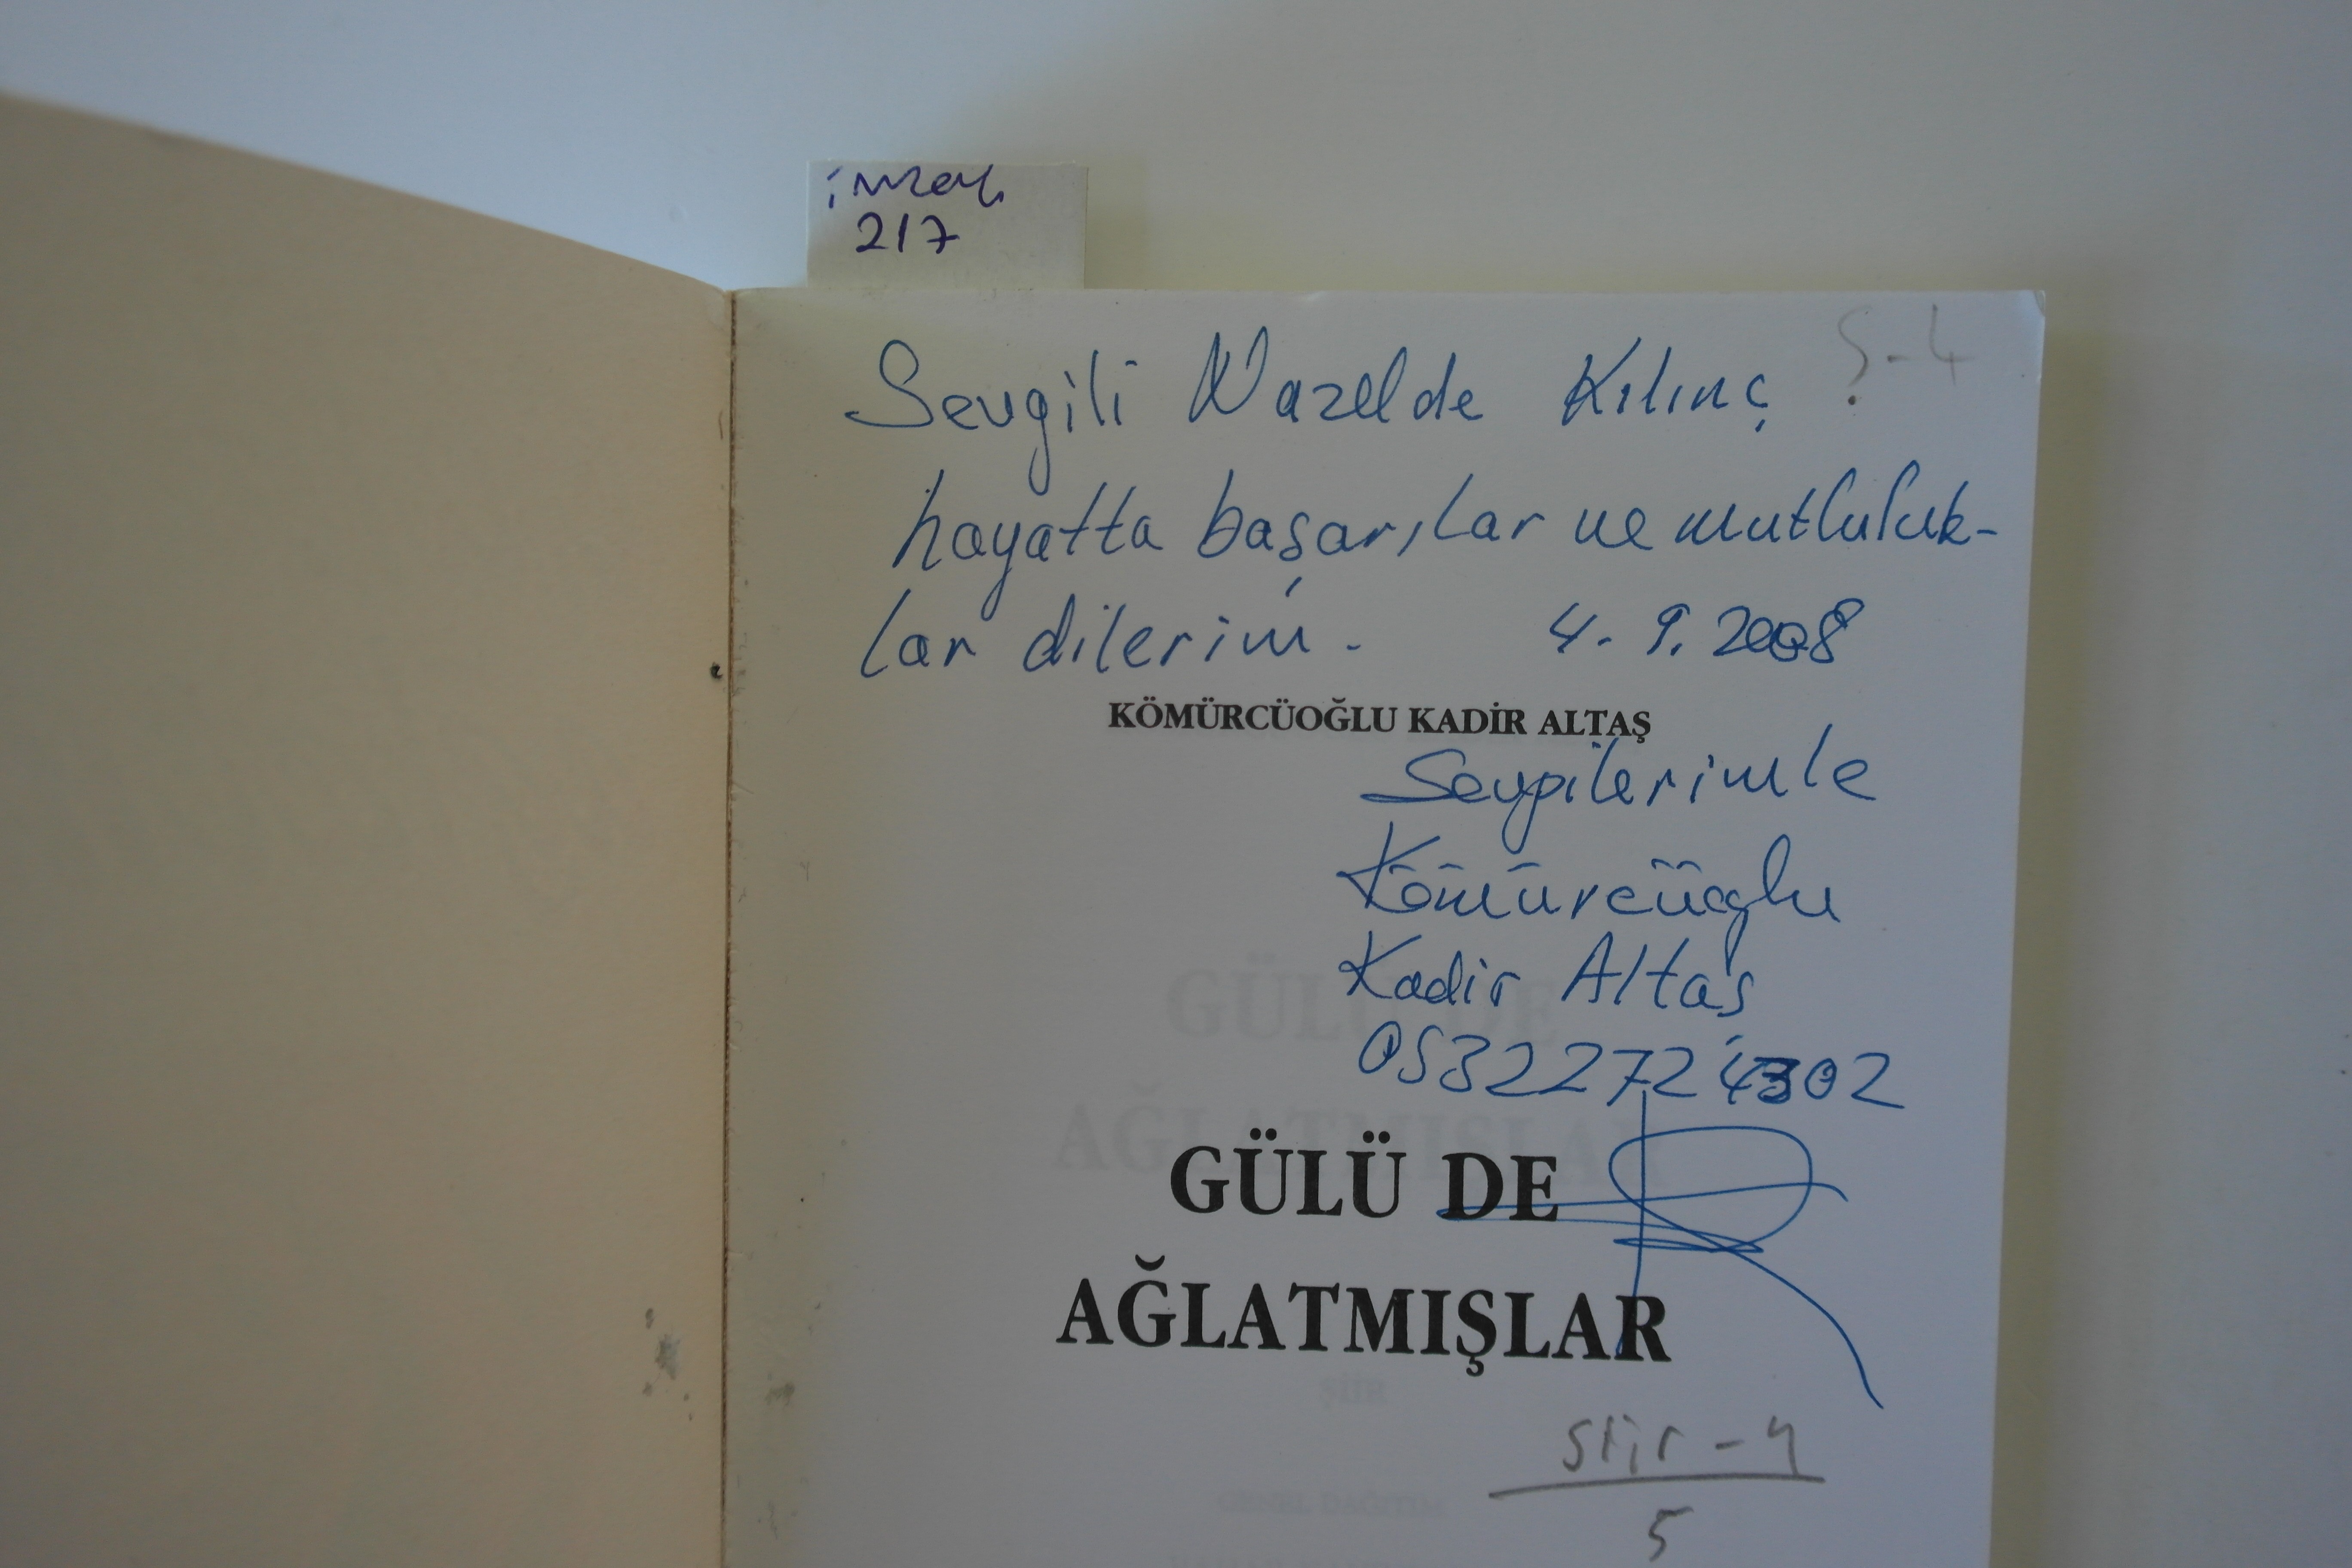 imzalı
217
Ş-4
Sevgili Nazelde Kılınç
hayatta başarılar ve mutluluk-
lar dilerim. 4.9.2008
KÖMÜRCÜOĞLU KADİR ALTAŞ
Sevgilerimle
Kömürcüoğlu
Kadir Altaş
05322724302
GÜLÜ DE
AĞLATMIŞLAR
ŞİİR
şiir-4
5